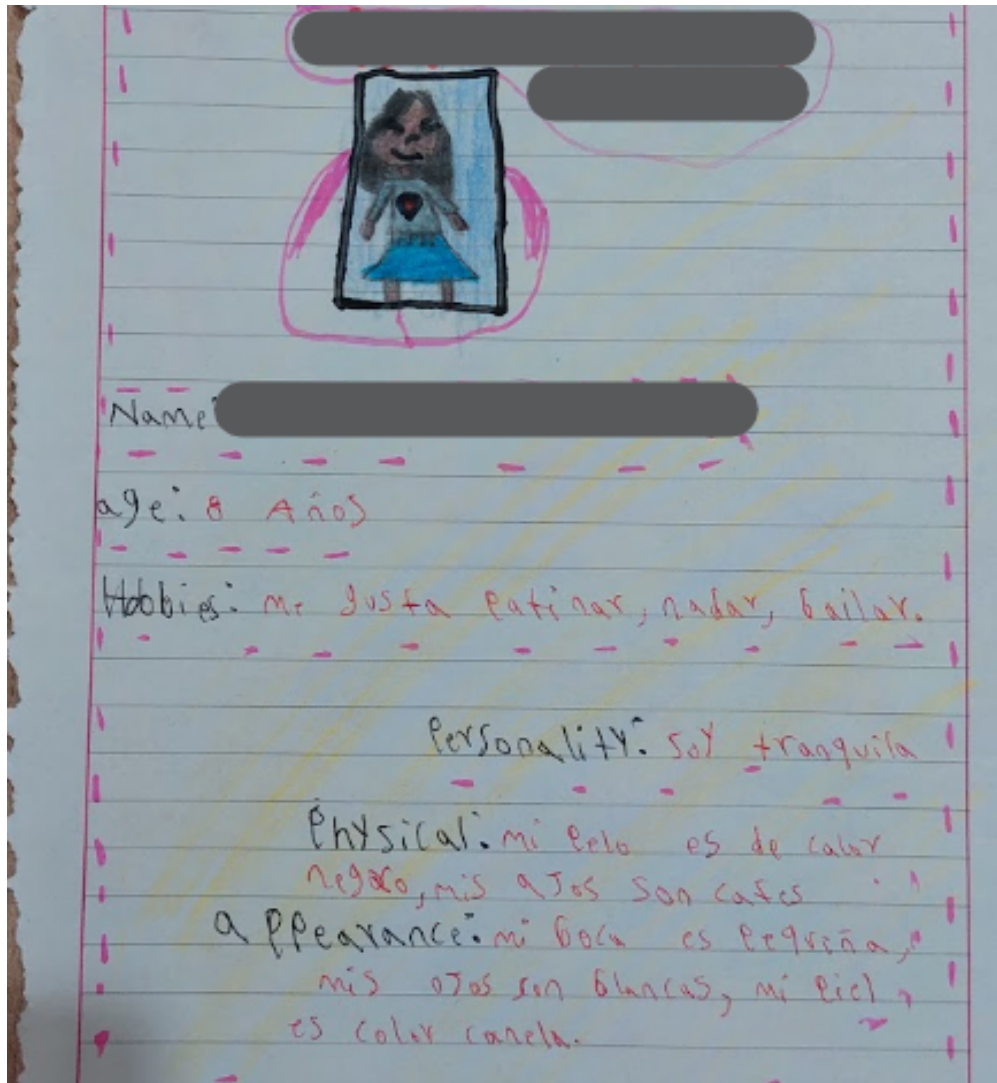 Name:
age: 8 Años
Hobbies: me gusta patinar, nadar, bailar.
Personality: soy tranquila
Physical: mi pelo es de color
negro, mis ojos son cafes
appearance: mi boca es pequeña,
mis ojos son blancas, mi piel
es color canela.